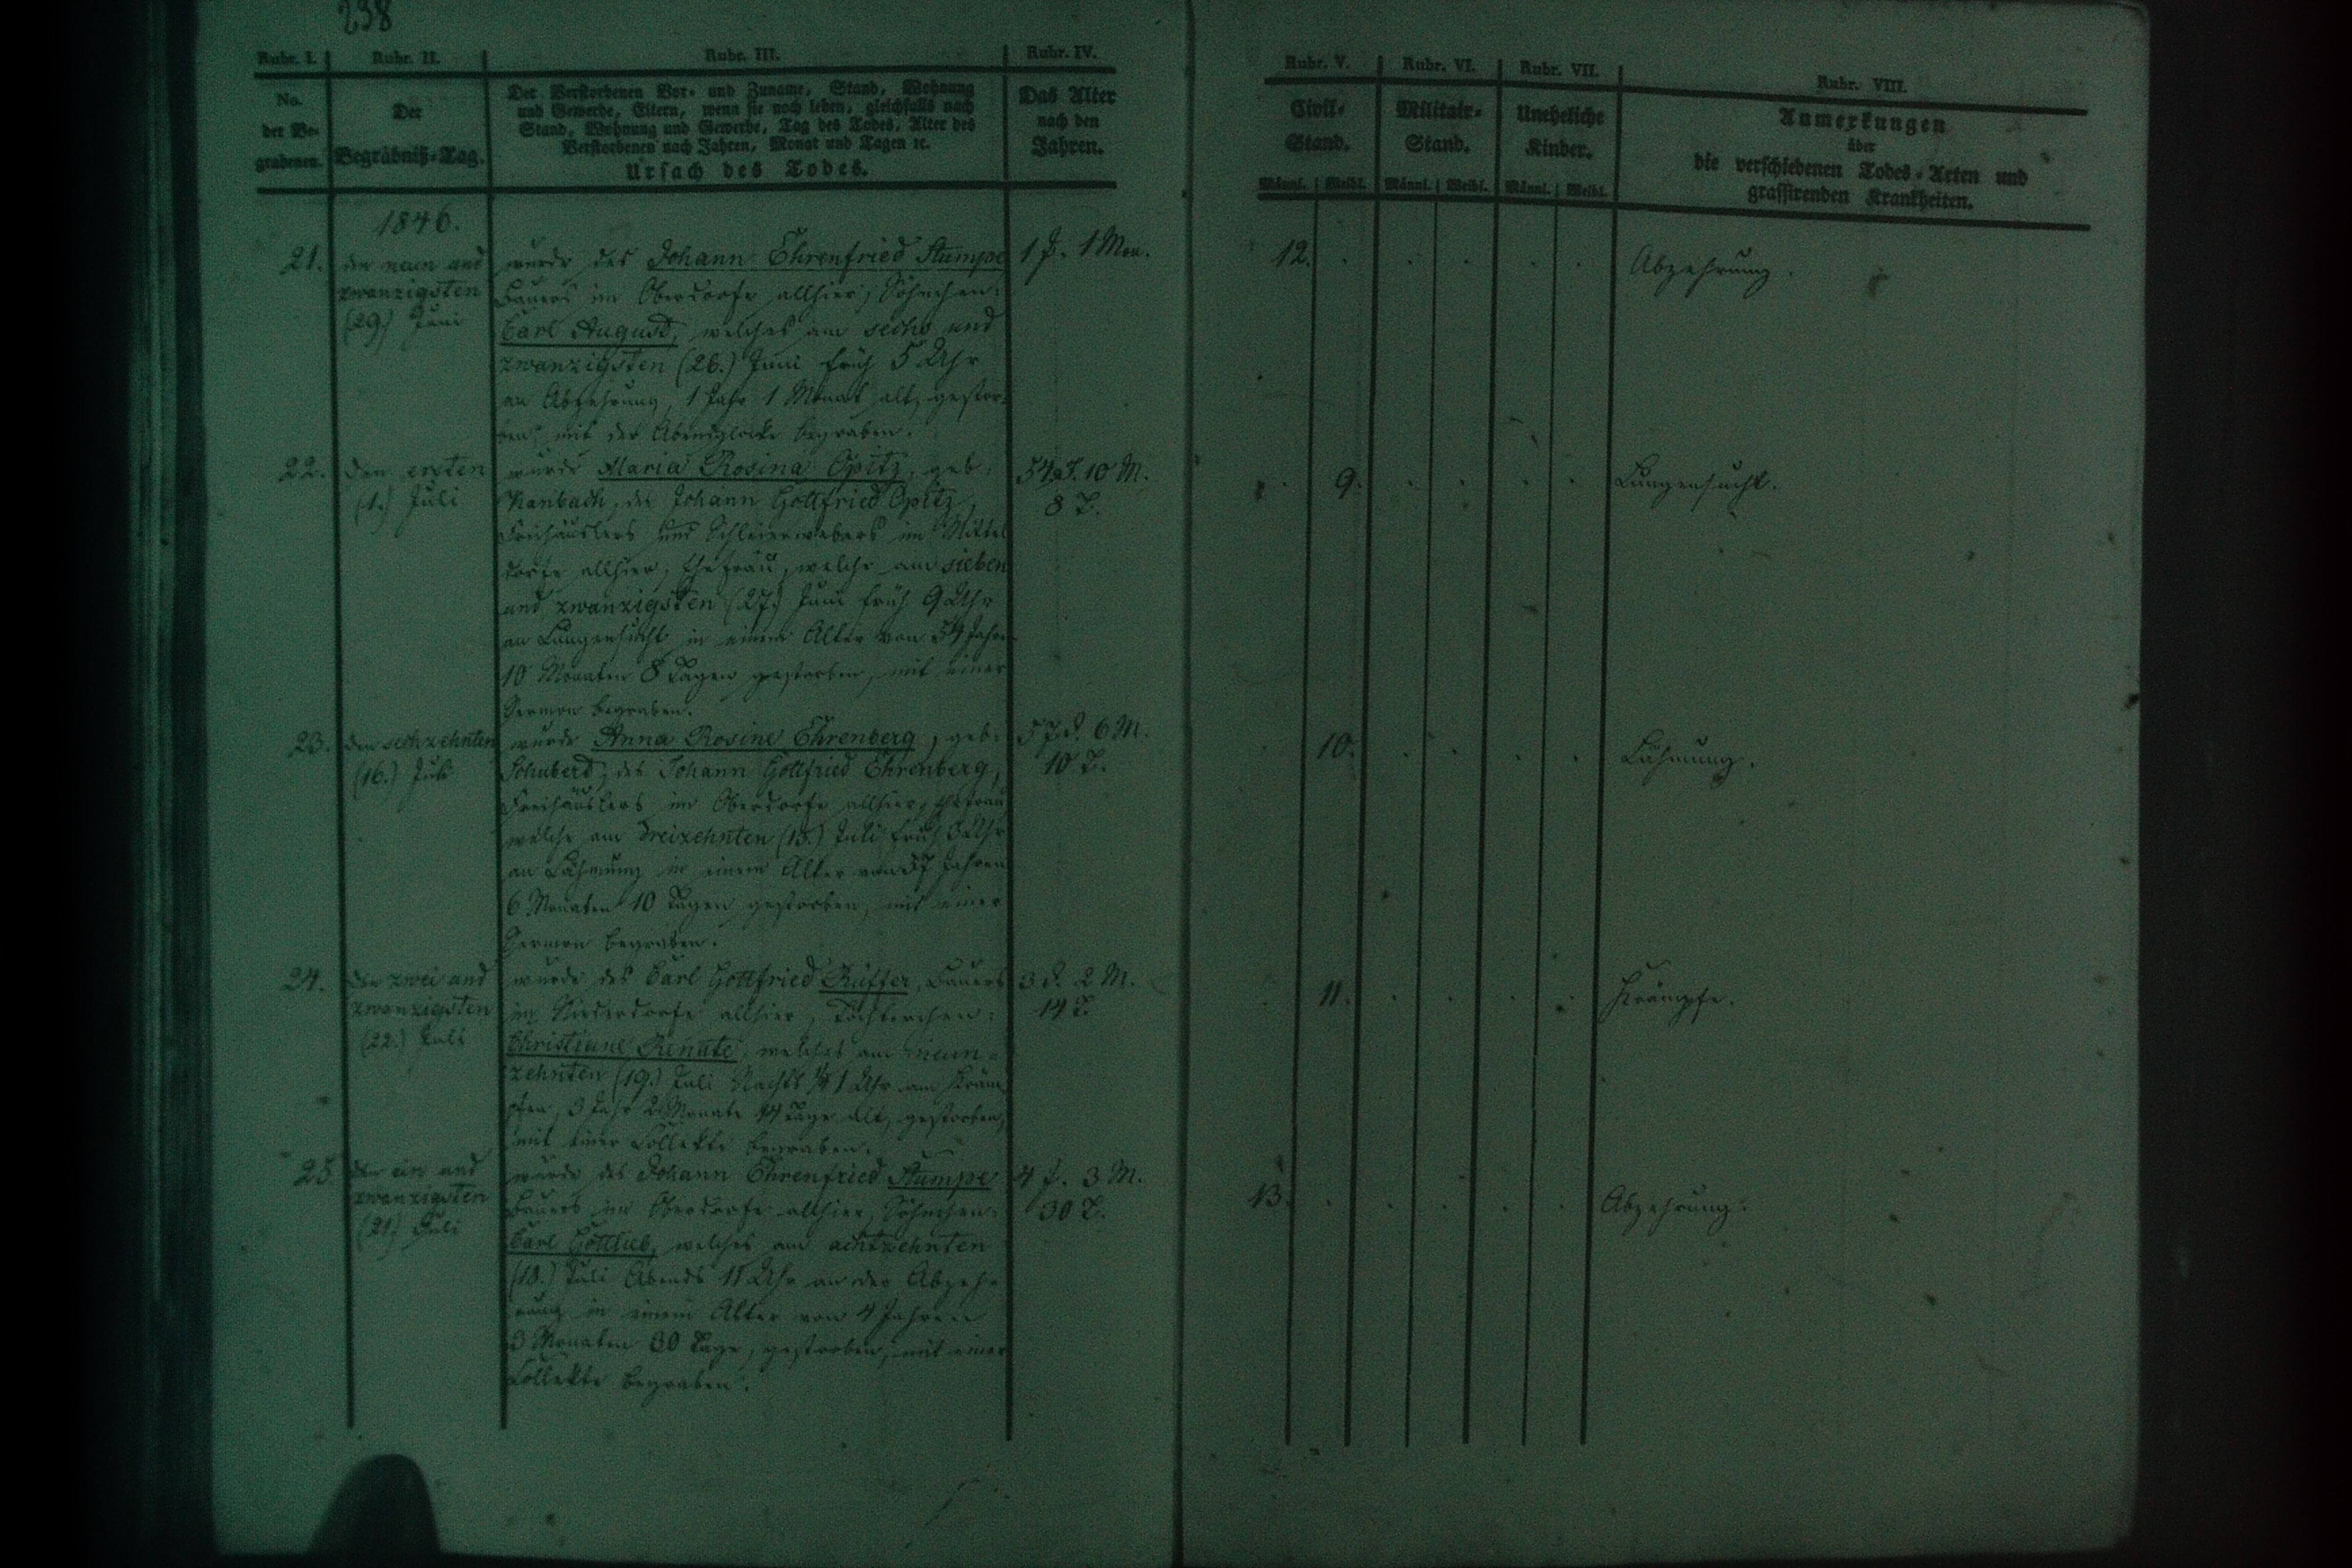 238
Rubr. I. Rubr. II. Rubr. III. Rubr. IV.
No. der Be- grabenen.
Der Begräbniß-Tag.
Der Verstorbenen Vor- und Zuname, Stand, Wohnung
und Gewerbe, Eltern, wenn sie noch leben, gleichfalls nach
Stand, Wohnung und Gewerbe, Tag des Todes, Alter des
Verstorbenen nach Jahren, Monat und Tagen ꝛc.
Ursach des Todes.
Das Alter
nach den
Jahren.
1846.
21. den neun und
zwanzigsten
(29.) Juni
wurde des Johann Ehrenfried Stumpe
Bauers im Oberdorfe allhier, Söhnchen:
Carl August, welches am sechs und
zwanzigsten (26.) Juni früh 5 Uhr
an Abzehrung, 1 Jahr 1 Monat alt, gestor-
ben, mit der Abendglocke begraben.
1 J. 1 Mon.
22. den ersten
(1.) Juli
wurde Maria Rosina Opitz, geb:
des Johann Gottfried Opitz,
Freihäuslers und Schleierwebers im Mittel
dorfe allhier, Ehefrau, welche am sieben
und zwanzigsten (27.) Juni früh 9 Uhr
an Lungensucht in einem Alter von 54 Jahren
10 Monaten 8 Tagen gestorben, mit einer
Sermon begraben.
54 J. 10 M.
8 T.
23. den sechzehnten
(16.) Juli
wurde Anna Rosine Ehrenberg, geb:
Schuberd, des Johann Gottfried Ehrenberg,
Freihäuslers im Oberdorfe allhier, Ehefrau
welche am dreizehnten (13.) Juli früh Uhr
an Lähmung in einem Alter von 57 Jahren
6 Monaten 10 Tagen gestorben, mit einer
Sermon begraben.
57 J. 6 M.
10 T.
24. den zwei und
zwanzigsten
(22.) Juli
wurde des Carl Gottfried Rüffer, Bauers
im Niederdorfe allhier, Töchterchen:
Christiane Renate, welches am neun-
zehnten (19.) Juli Nachts 1 Uhr am Kräm-
pfen, 3 Jahr 2 Monate 14 Tage alt, gestorben,
mit einer Collekte begraben.
3 J. 2 M.
14 T.
25. den ein und
zwanzigsten
(21.) Juli
wurde des Johann Ehrenfried Stumpe
Bauers im Oberdorfe allhier, Söhnchen:
Carl Gottlieb, welches am achtzehnten
(18.) Juli Abends 11 Uhr an der Abzeh-
rung in einem Alter von 4 Jahren
3 Monaten 30 Tage, gestorben, mit einer
Collekte begraben.
4 J. 3 M.
30 T.
Rubr. V. Rubr. VI. Rubr. VII. Rubr. VIII.
Civil-
Stand.
Militair-
Stand.
Uneheliche
Kinder.
Anmerkungen
über
die verschiedenen Todes-Arten und
grassirenden Krankheiten.
Männl. Weibl. Männl. Weibl. Männl. Weibl.
12. . . . . . Abzehrung.
. 9. . . . . Lungensucht.
10. . . . . Lähmung.
11. . . . . Krämpfe.
13. . . . . . Abzehrung.